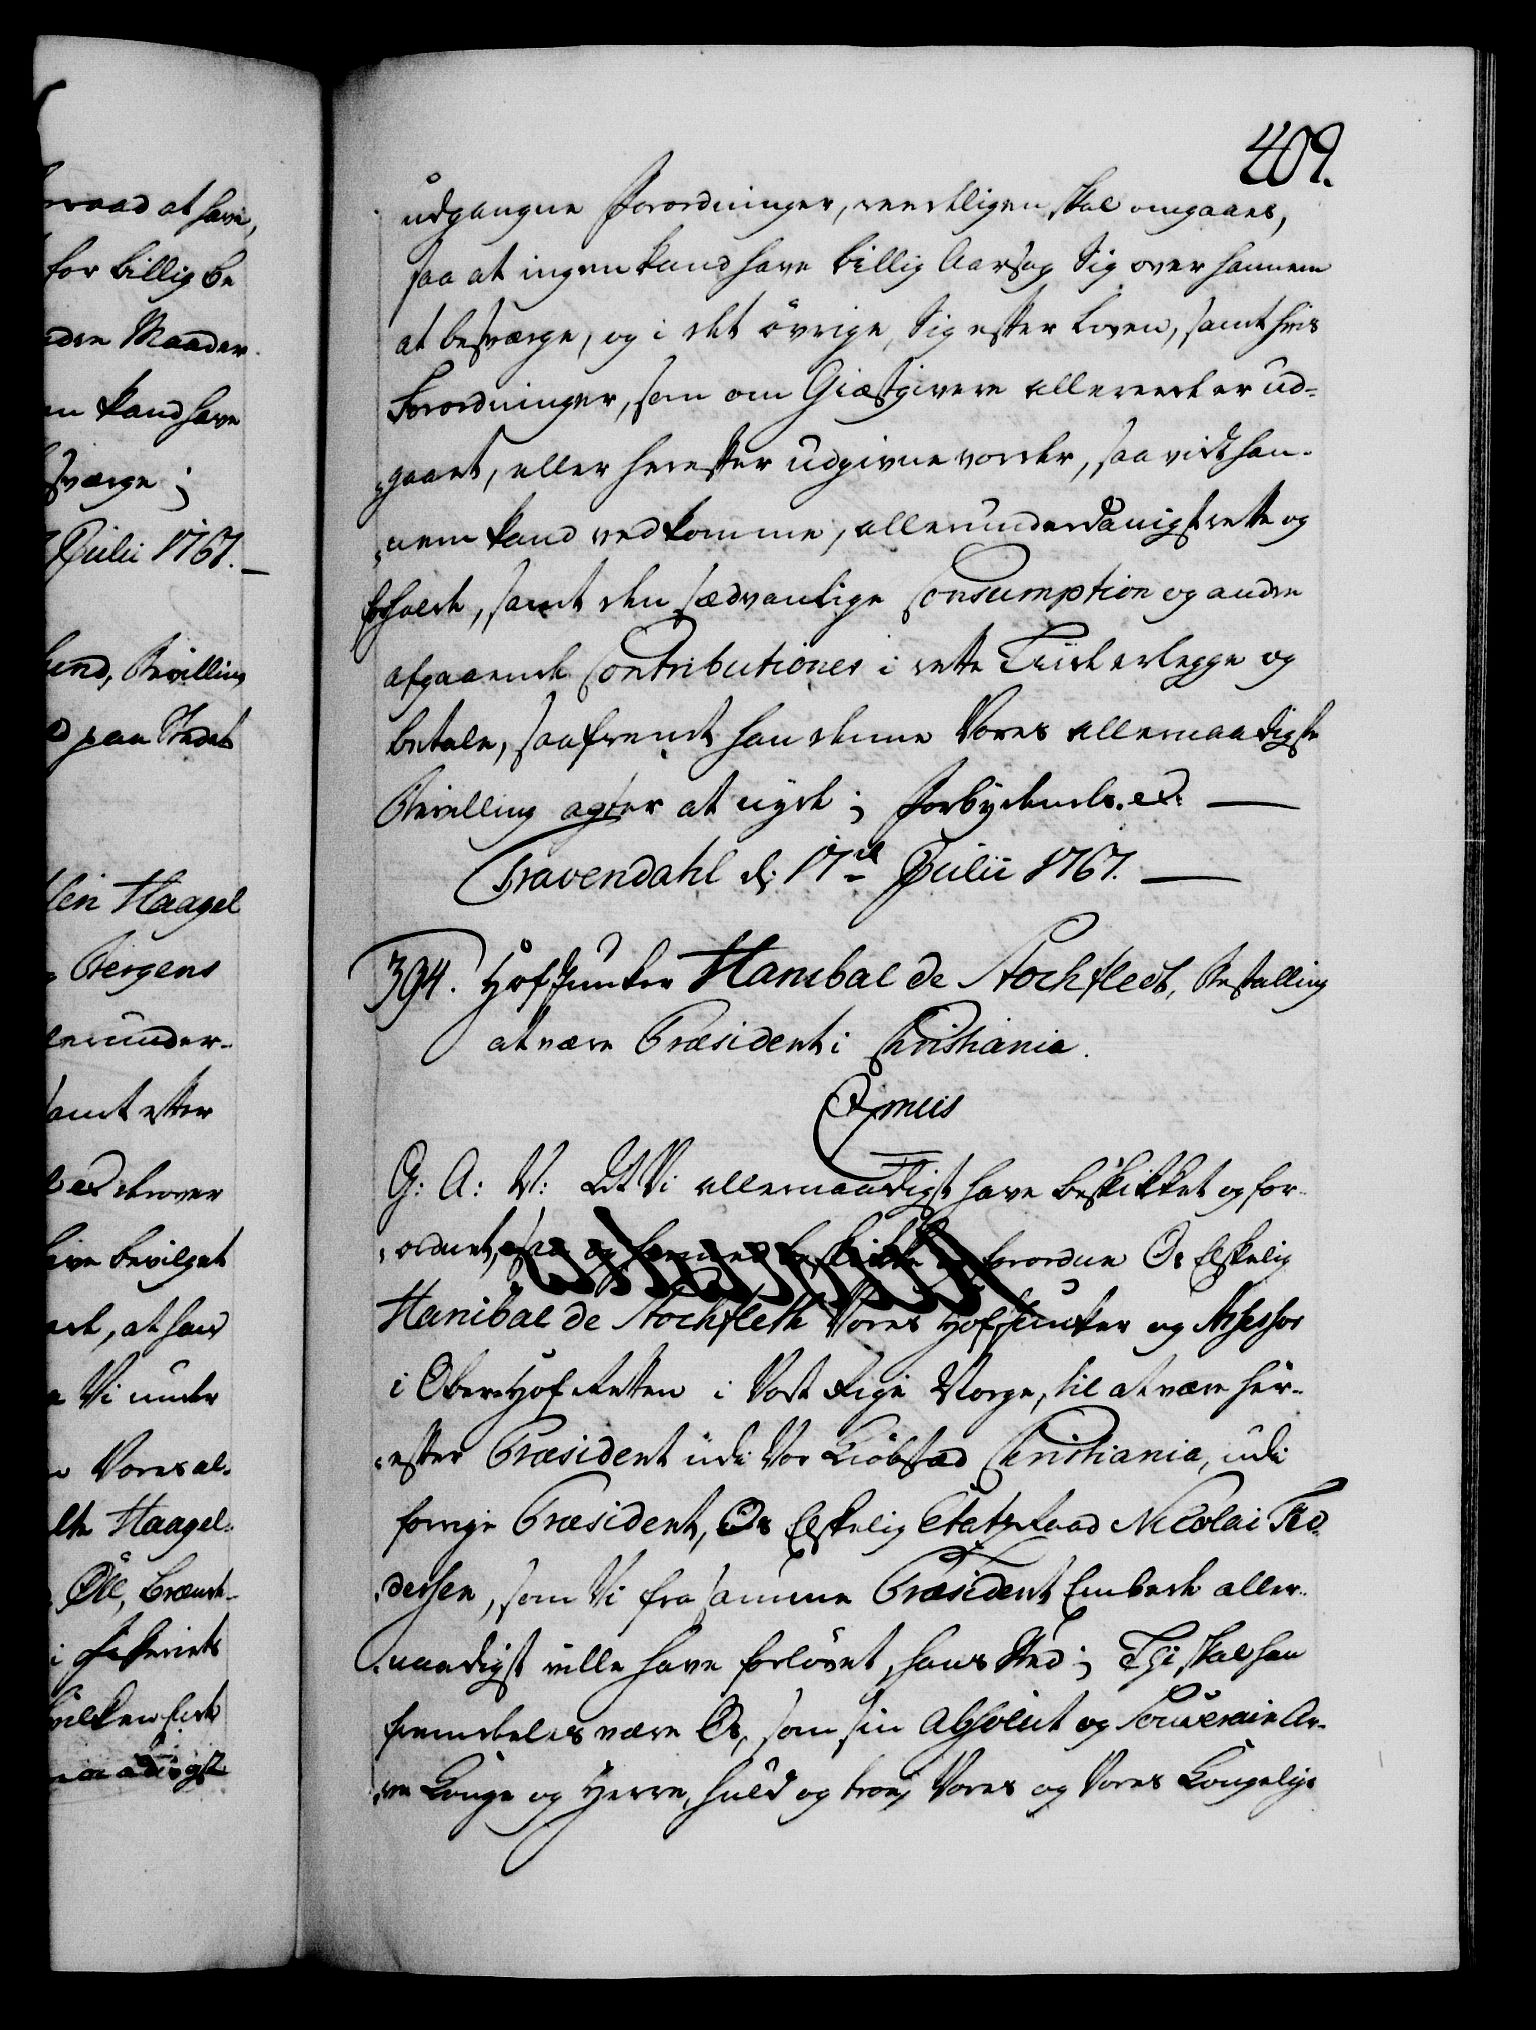 409.
udgangne Forordninger, reedeligen skal omgaaes,
saa at ingen kand have billig Aarsag Sig over hannem
at besværge, og i det övrige, Sig efter Loven, samt hvis
Forordninger, som om Giæstgivere allereede er ud-
gaaet, eller herefter udgivne vorder, saa vidt han-
nem kand vedkomme, allerunderdanigst rette og
forholde, samt den sædvanlige Consumption og andre
afgaaende Contributioner i rette Tiide erlegge og
betale, saafremt han denne Vores allernaadigste
Bevilling agter at nyde; Forbydende. etc.
Travendahl d: 17de Julii 1767.
394. HofJunker Hanibal de Stochfledt, Bestalling
at være Præsident i Christiania.
G: A: V: At Vi allernaadigst have beskikket og for-
ordnet, saa og hermed beskikke og forordne Os Elskelig
Hanibal de Stochfleth Vores Hofjunker og Assessor
i OberHofRetten i Vort Rige Norge, til at være her-
efter Præsident udi Vor Kiöbstad Christiania, udi
forrige Præsident, Os Elskelig EtatzRaad Nicolai Fed-
dersen, som Vi fra samme Præsident Embede aller-
naadigst ville have forlövet, hans Sted; Thi skal han
fremdeles være Os, som sin Absolut og Souverain Ar-
ve Konge og Herre, huld og troe, Vores og Vores Kongelige
raad at have,
for billig be
Maader
kand have
sværge;
Julii 1767.
Bevilling
paa Stedet
Haagel
Bergens
lerunder-
samt efter
derover
bevilget
at hand
Vi under
Vores al-
Haagel-
Öll, Brænde-
naadigste